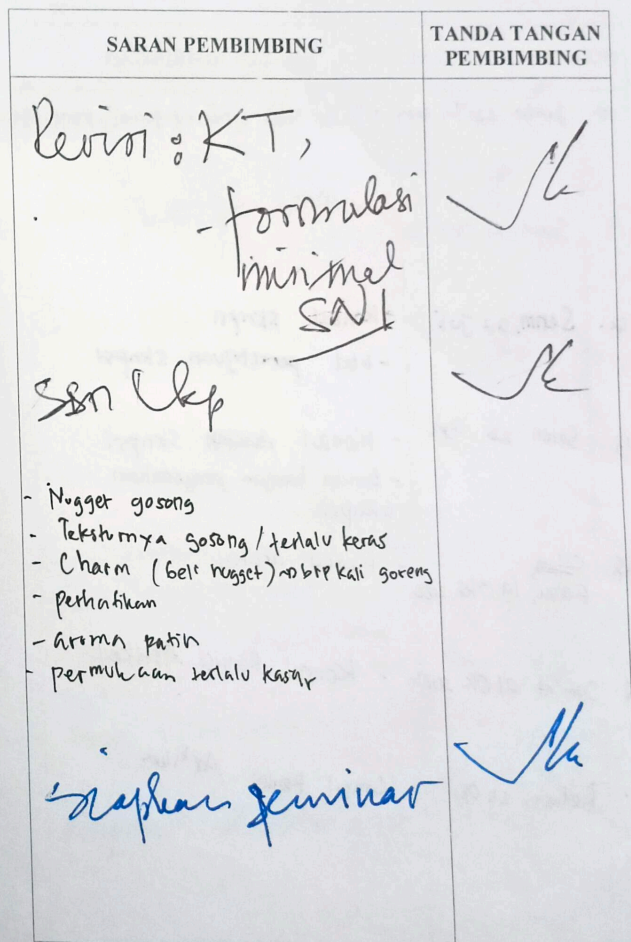 SARAN PEMBIMBING
TANDA TANGAN
PEMBIMBING
Revisi : KT,
- formulasi
minimal
SNI
- Nugget gosong
- Teksturnya gosong / terlalu keras
- Charm (beli nugget) → brp kali goreng
- perhatikan
- aroma patin
- permukaan terlalu kasar
siapkan seminar